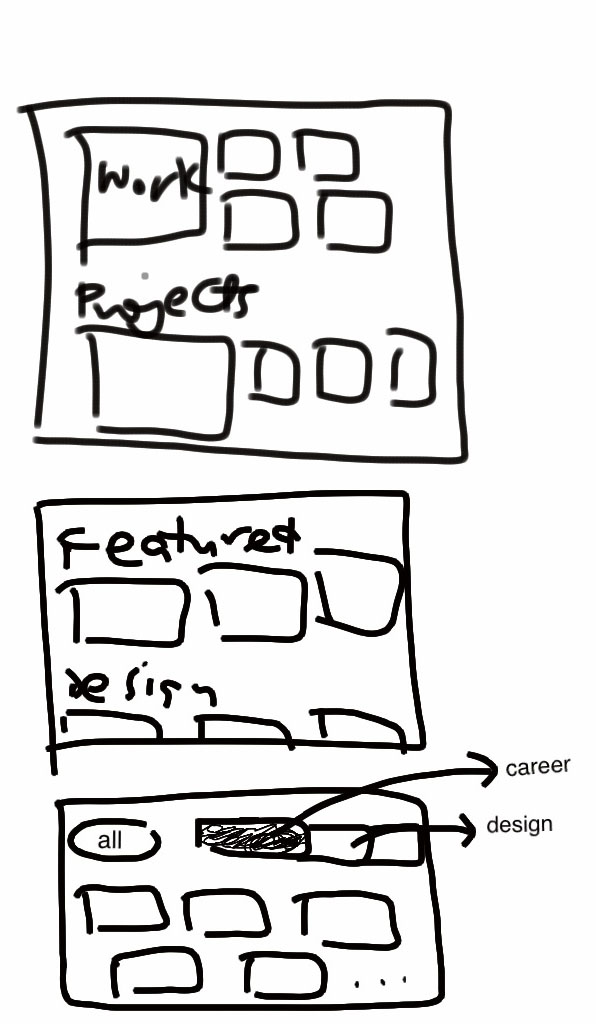 Work
Projects
Featured
design
career
design
all
...